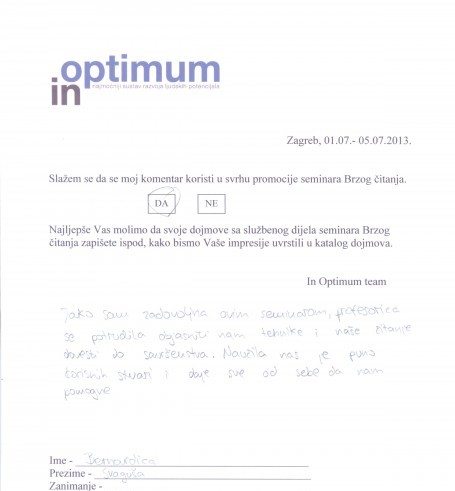 in optimum
najmoćniji sustav razvoja ljudskih potencijala
Zagreb, 01.07.- 05.07.2013.
Slažem se da se moj komentar koristi u svrhu promocije seminara Brzog čitanja.
DA NE
Najljepše Vas molimo da svoje dojmove sa službenog dijela seminara Brzog
čitanja zapišete ispod, kako bismo Vaše impresije uvrstili u katalog dojmova.
In Optimum team
Jako sam zadovoljna ovim seminarom, profesorica
se potrudila objasniti nam tehnike i naše čitanje
dovesti do savršenstva. Naučila nas je puno
korisnih stvari i daje sve od sebe da nam
pomogne
Ime - Bernardica
Prezime -
Zanimanje -